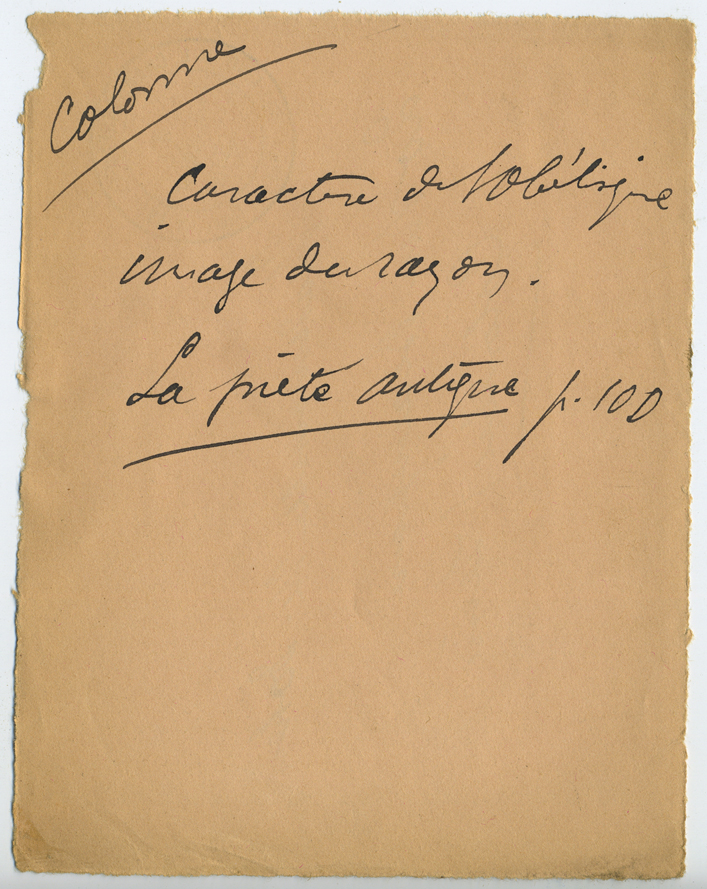 Colonne
Caractere de l'Obélisque
image du rayon.
La piété antique p. 100